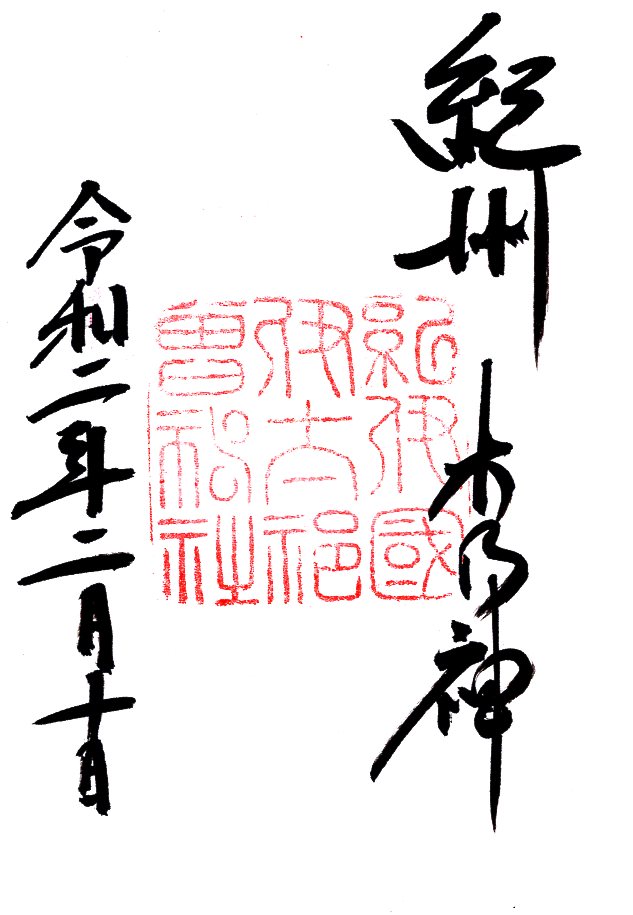 紀州 木の神
紀伊國
伊太祁
曽神社
令和二年二月十日